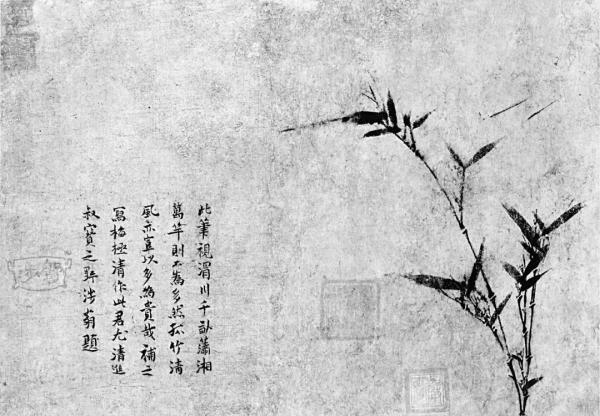 此筆視渭川千畝瀟湘
萬竿則不為多然孤竹清
風亦豈以多為貴哉補之
寫梅極清作此君尤清進
叔寶之跋涉翁題